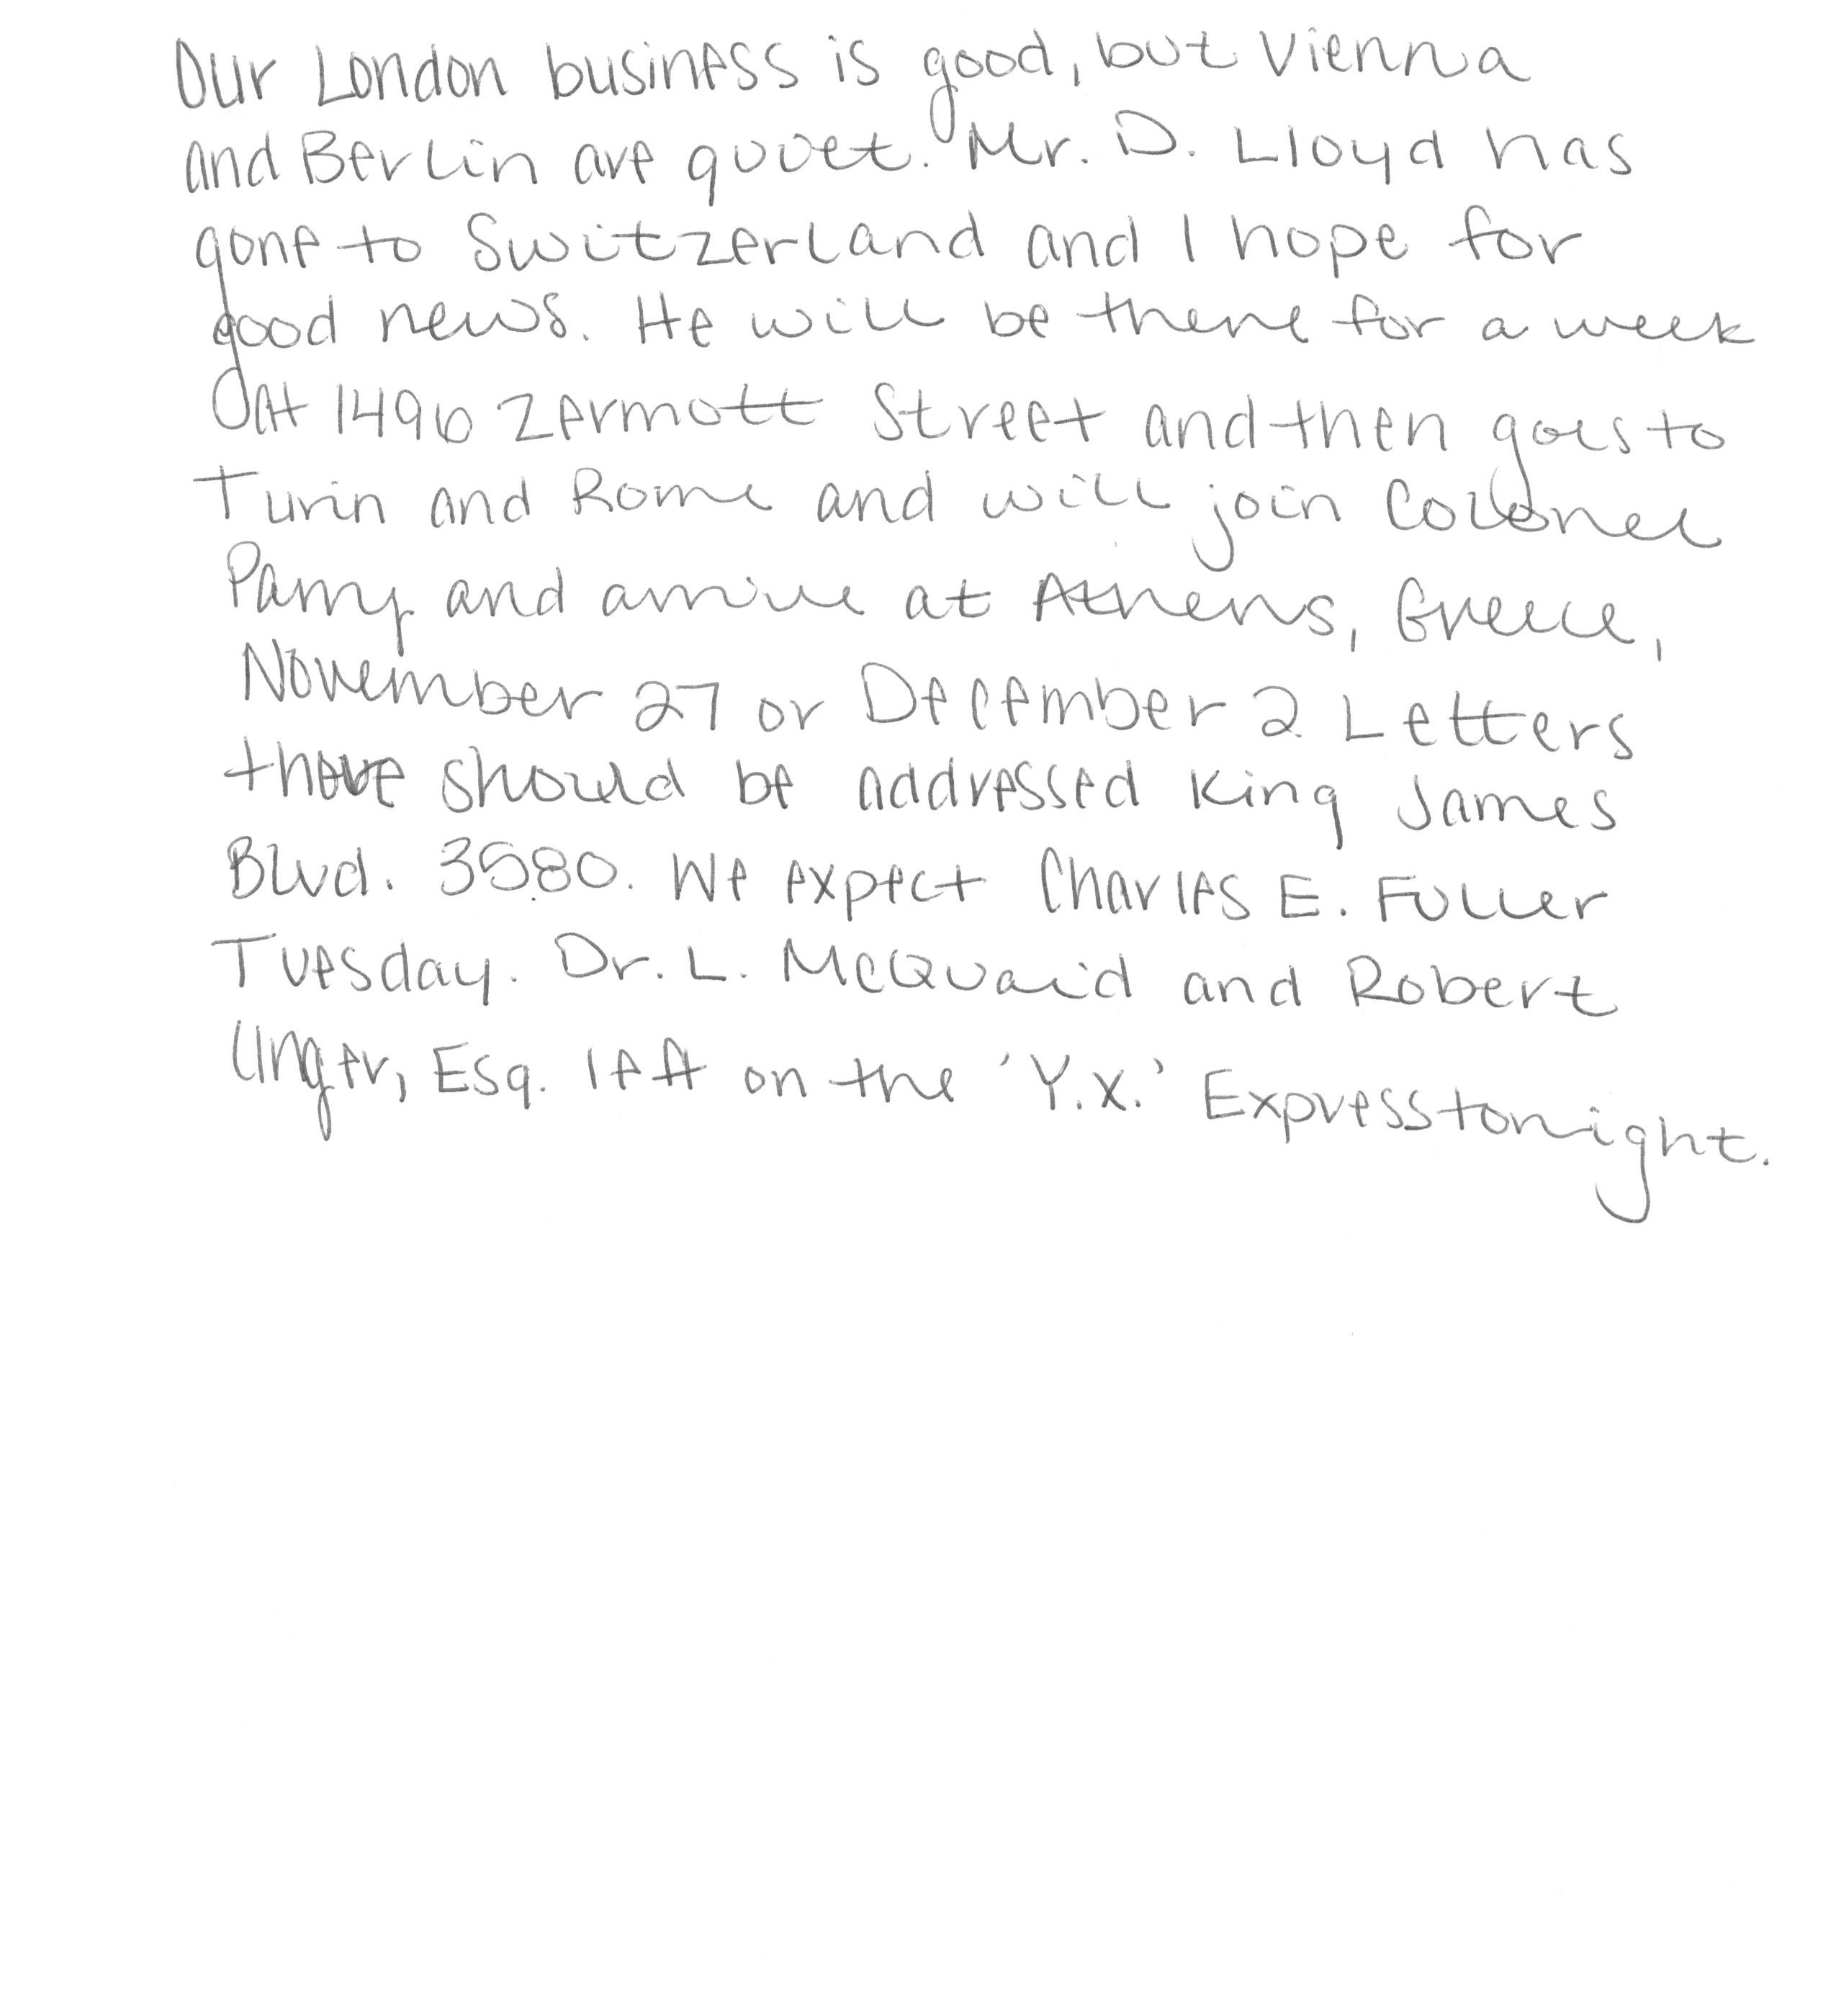 Our London business is good, but Vienna
and Berlin are quiet. Mr. D. Lloyd has
gone to Switzerland and I hope for
good news. He will be there for a week
at 1496 Zermott Street and then goes to
Turin and Rome and will join Colonel
Parry and arrive at Athens, Greece,
November 27 or December 2. Letters
there should be addressed King James
Blvd. 3580. We expect Charles E. Fuller
Tuesday. Dr. L. McQuaid and Robert
Unger, Esq. left on the 'Y.X.' Express tonight.